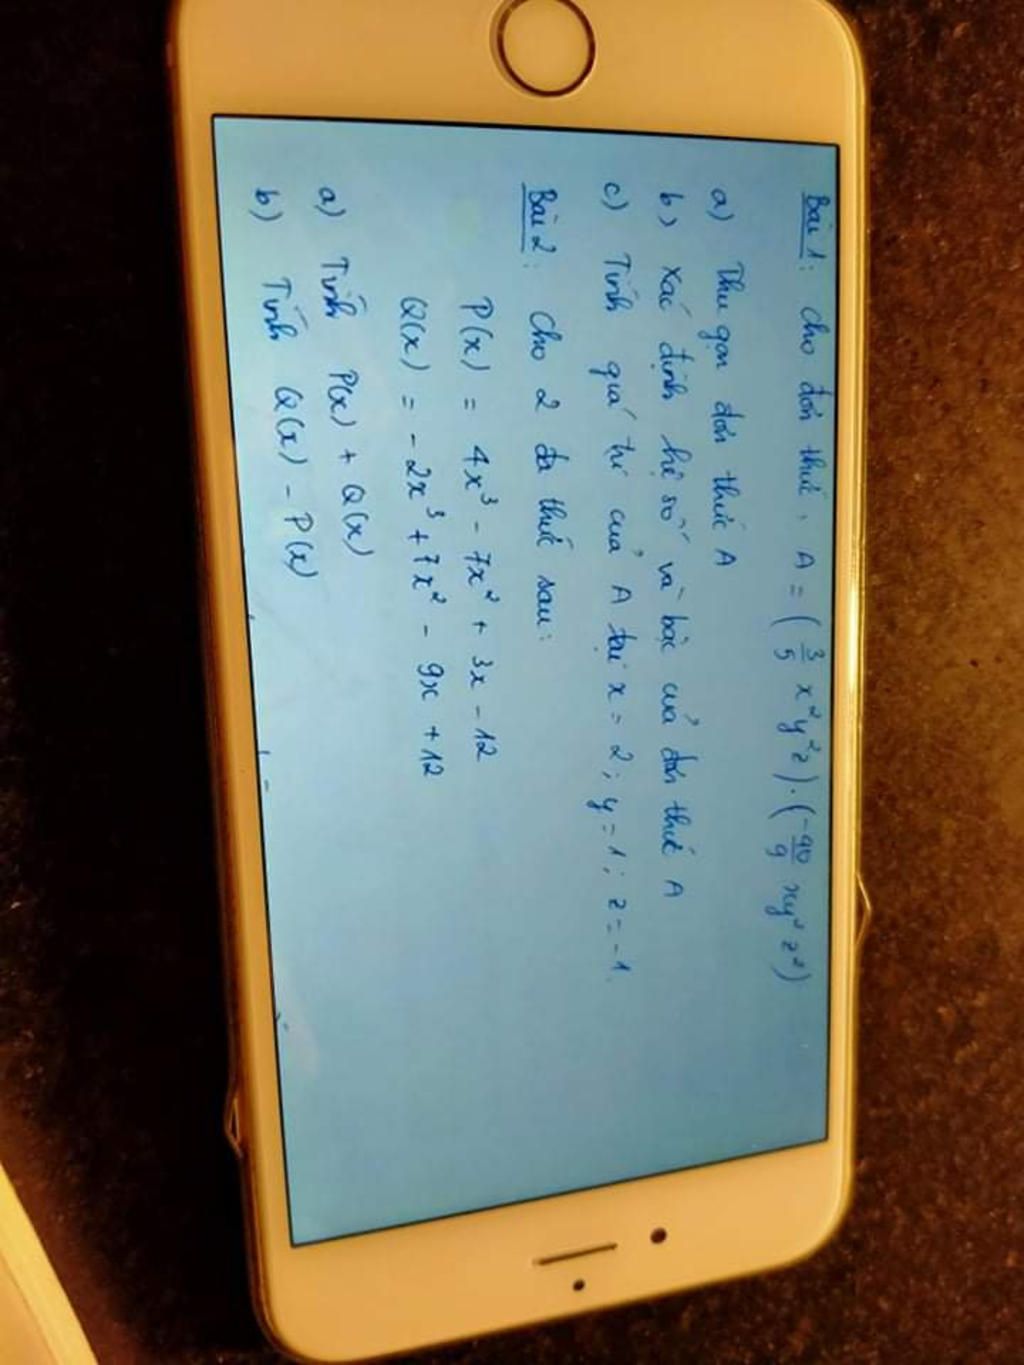 Bài 1: Cho đơn thức, A = ( 3/5 x²y²z ) . ( -40/9 xy² z² )
a) Thu gọn đơn thức A
b) Xác định hệ số và bậc của đơn thức A
c) Tính giá trị của A tại x = 2 ; y = 1 ; z = -1.
Bài 2: Cho 2 đa thức sau:
P(x) = 4x³ - 7x² + 3x - 12
Q(x) = - 2x³ + 7x² - 9x + 12
a) Tính P(x) + Q(x)
b) Tính Q(x) - P(x)